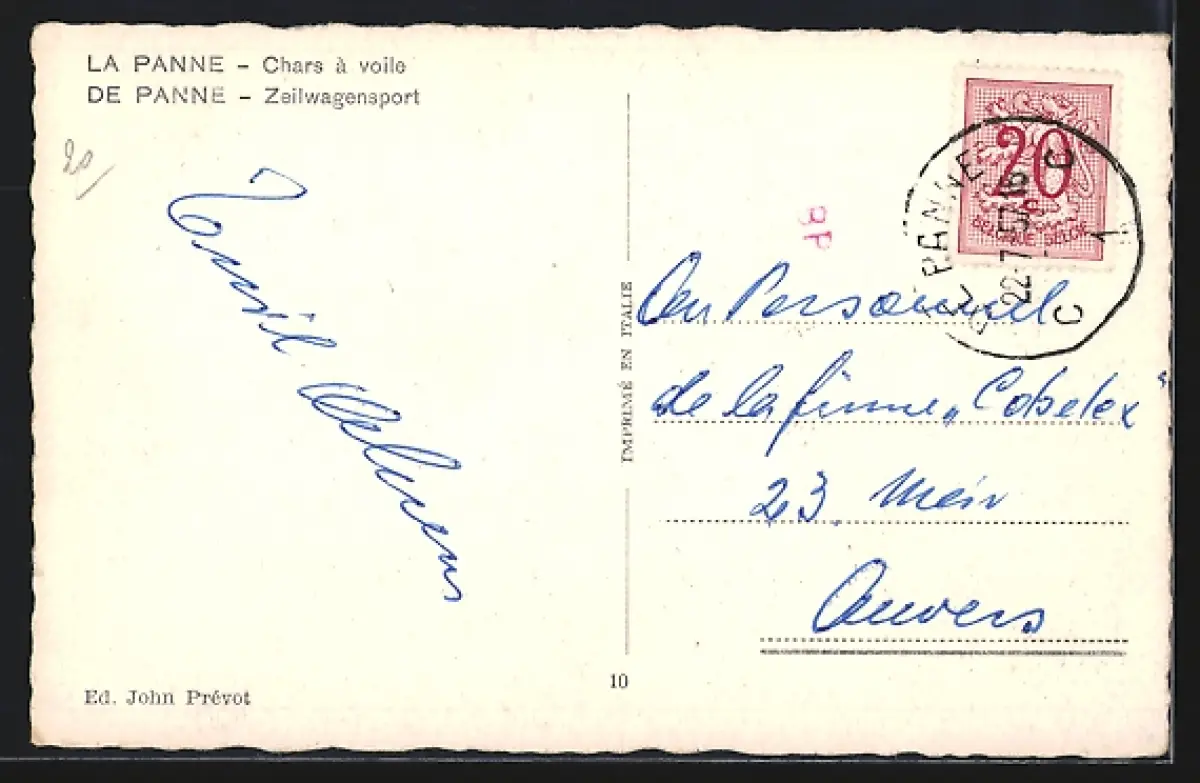 LA PANNE – Chars à voile
DE PANNE – Zeilwagensport
20
20
c
BELGIQUE BELGIE
DE PANNE
22-7
C
C
1
IMPRIMÉ EN ITALIE
Au Personnel
de la firme „Cobelex"
23, Meir
Anvers
10
Ed. John Prévot